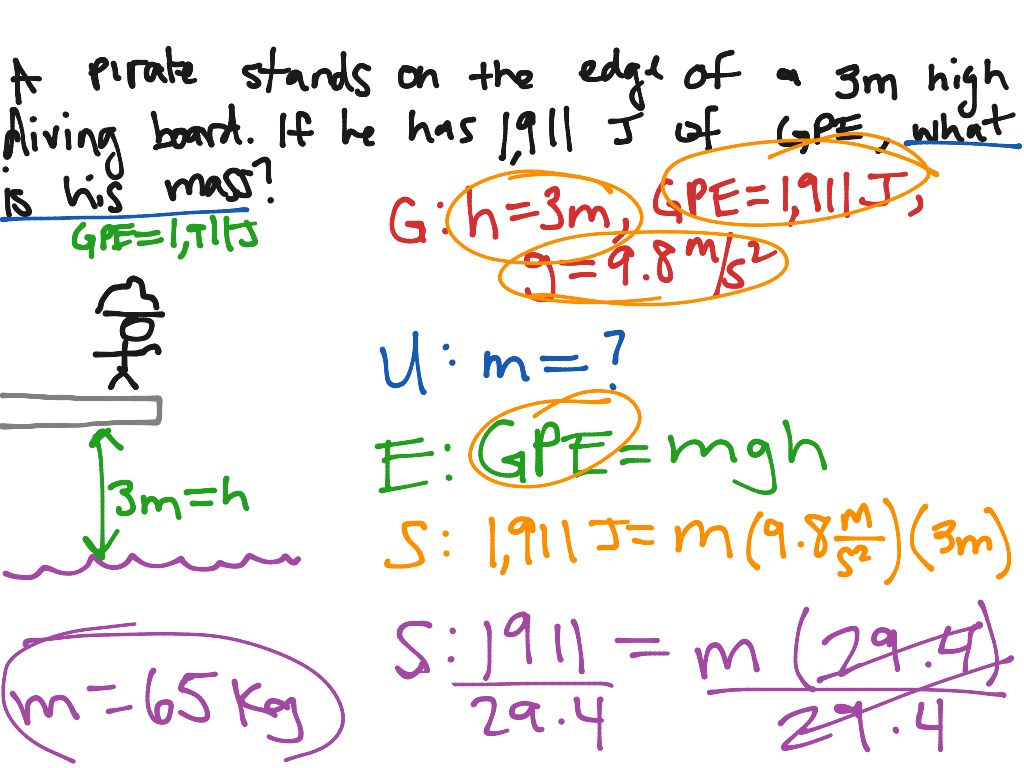 A pirate stands on the edge of a 3m high
diving board. If he has 1,911 J of GPE, what
is his mass?
GPE=1,911J
G: h=3m, GPE=1,911J,
g=9.8 m/s²
U: m=?
E: GPE=mgh
3m=h
S: 1,911J=m(9.8 m/s²)(3m)
S: 1911/29.4 = m(29.4)/29.4
m=65kg